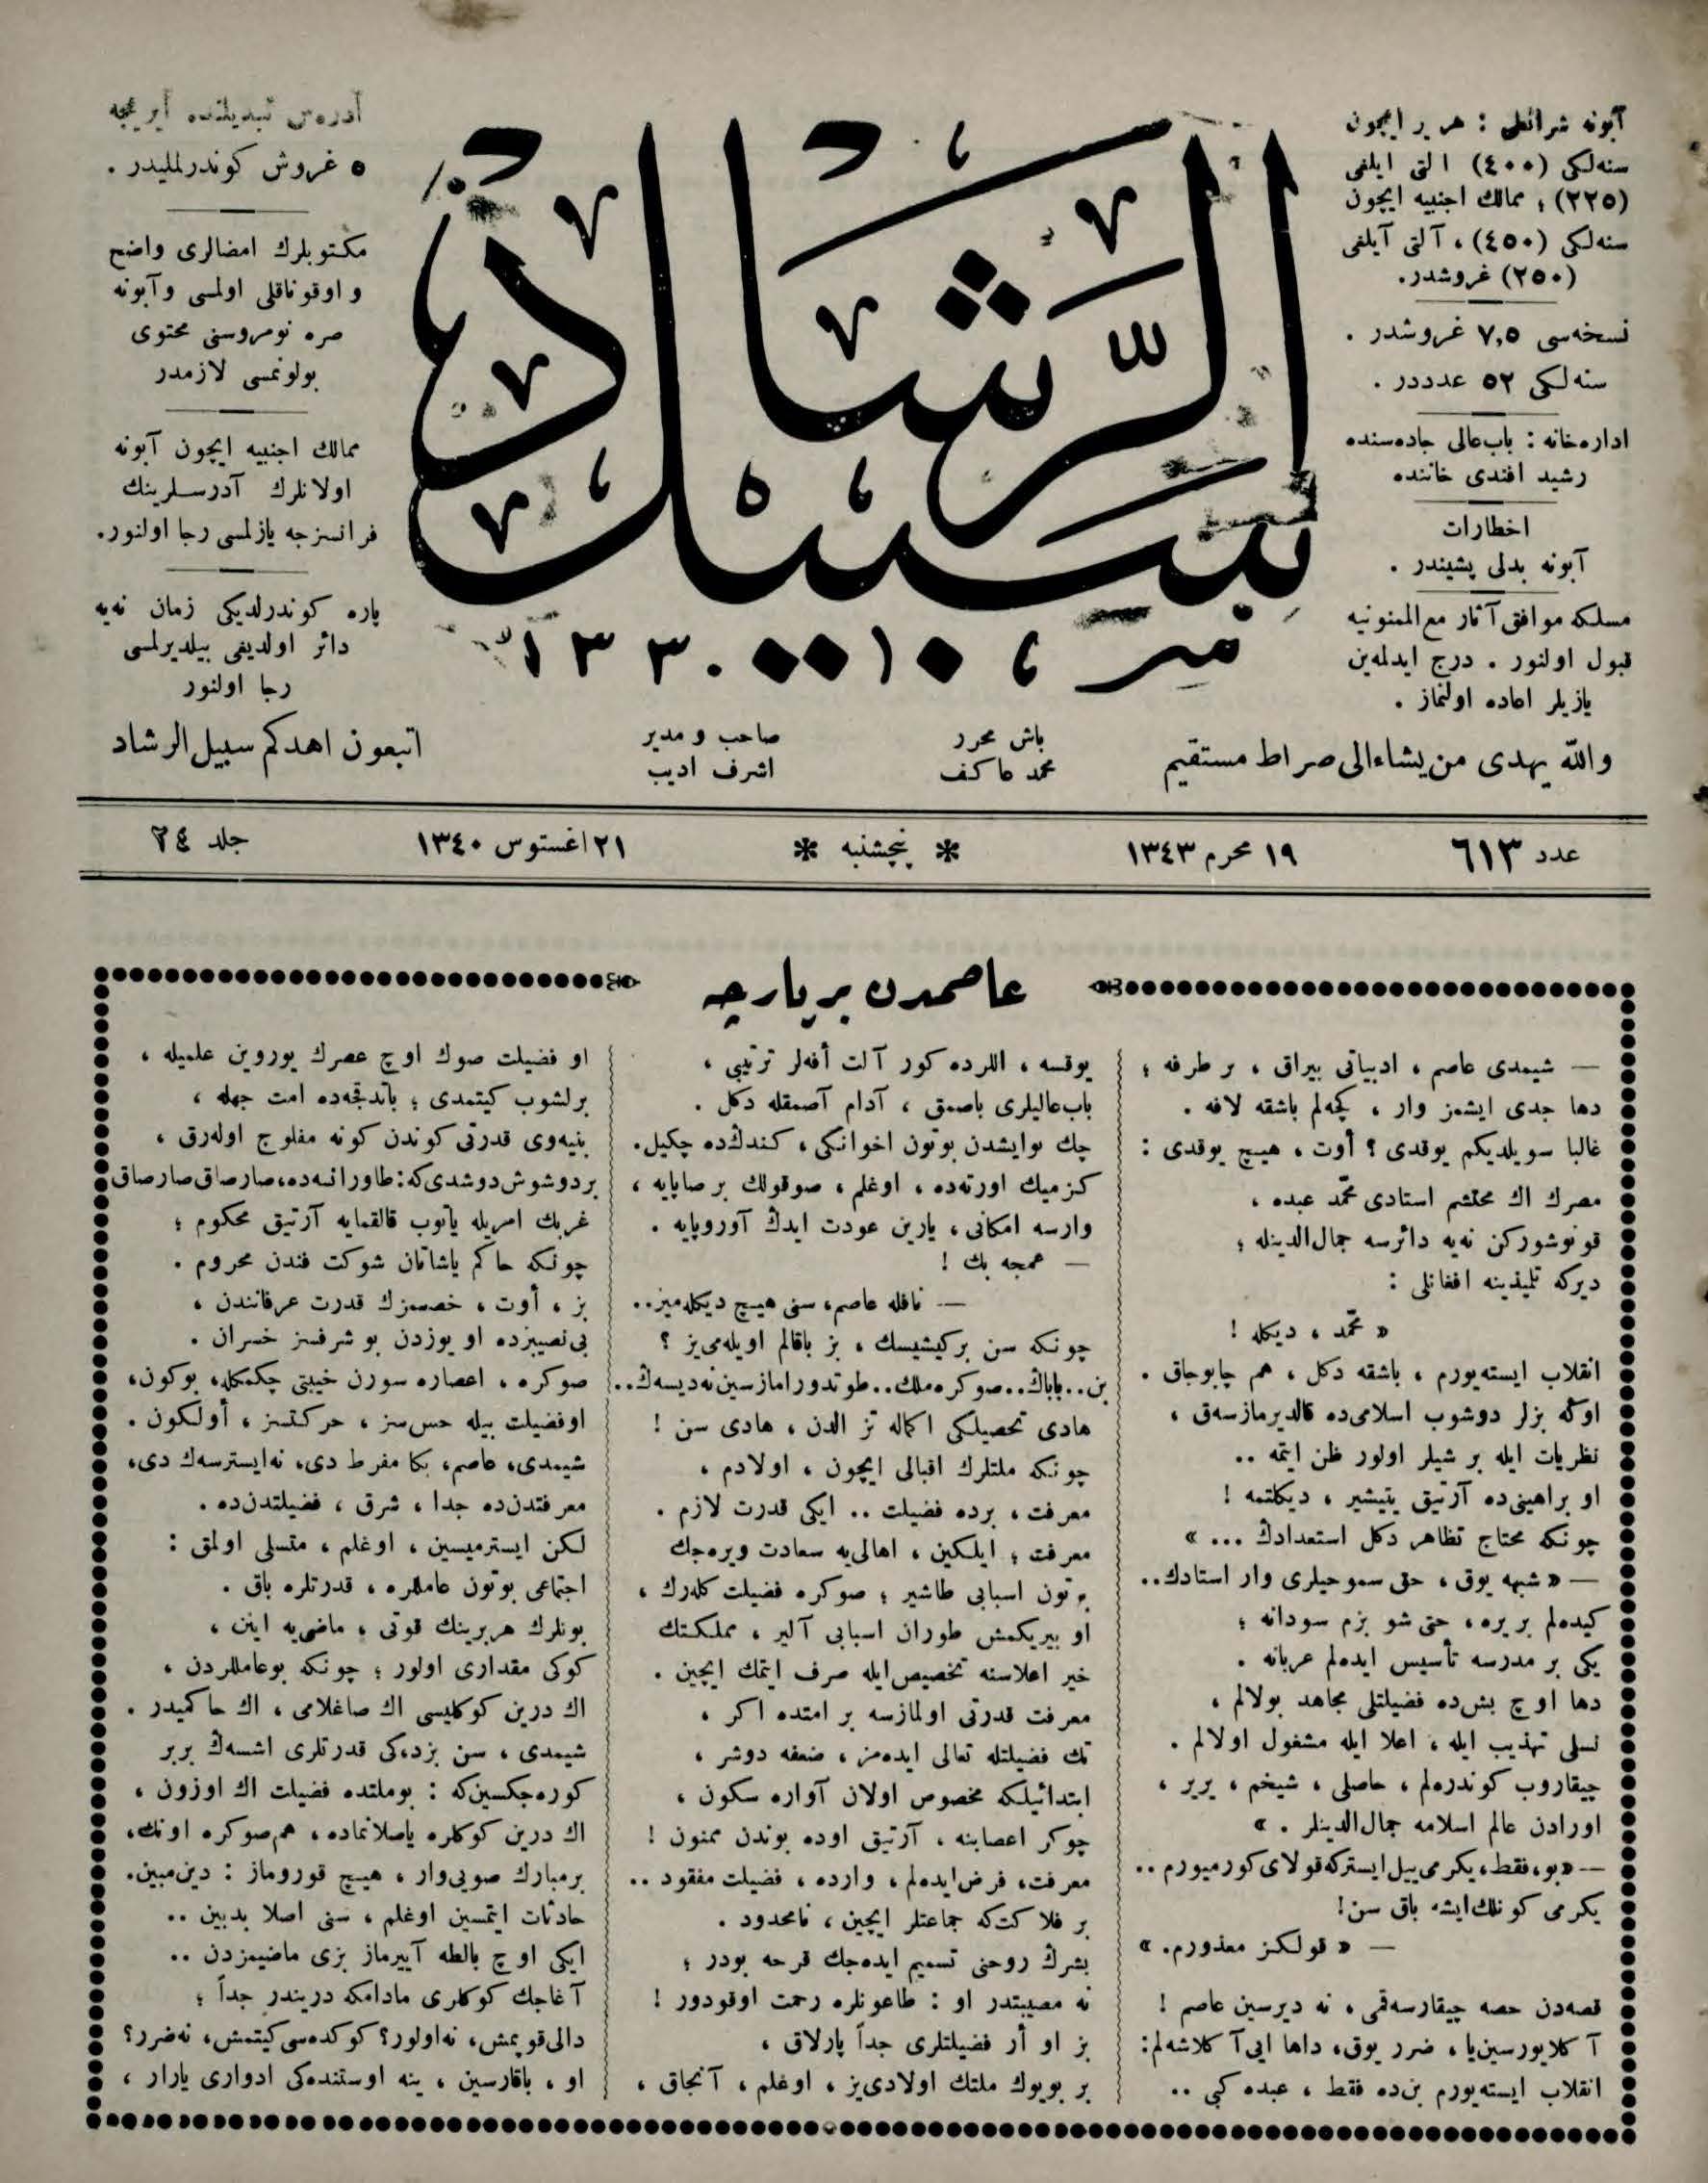 آبونه شرائطی : هر یر ایچون
سنه‌لكی (٤٠٠) التی ایلغی
(٢٢٥) ؛ ممالك اجنبیه ایچون
سنه‌لكی (٤٥٠) ، آلتی آیلغی
(٢٥٠) غروشدر.
نسخه‌سی ٧,٥ غروشدر .
سنه‌لكی ٥٢ عدددر .
اداره‌خانه : باب‌عالی جاده‌سنده
رشید افندی خاننده
اخطارات
آبونه بدلی پشیندر .
مسلكه موافق آثار مع‌الممنونیه
قبول اولنور . درج ایدلمه‌ین
یازیلر اعاده اولنماز .
سبیل الرّشاد
آدره‌س تبدیلنده آیریجه
٥ غروش كوندرلملیدر .
مكتوبلرك امضالری واضح
و اوقوناقلی اولمسی وآبونه
صره نومروسنی محتوی
بولونمسی لازمدر
ممالك اجنبیه ایچون آبونه
اولانلرك آدرسلرینك
فرانسزجه یازلمسی رجا اولنور.
پاره كوندرلدیكی زمان نه‌یه
دائر اولدیغی بیلدیرلمسی
رجا اولنور
والله یهدی من یشاء الی صراط مستقیم
باش محرر
محمد عاكف
صاحب و مدیر
اشرف ادیب
اتبعون اهدكم سبیل الرشاد
عدد ٦١٣
١٩ محرم ١٣٤٣
* پنجشنبه *
٢١ اغستوس ١٣٤٠
جلد ٢٤
عاصمدن بر پارچه
— شیمدی عاصم ، ادبیاتی بیراق ، بر طرفه ؛
دها جدی ایشمز وار ، كچه‌لم باشقه لافه .
غالبا سویلدیكم یوقدی ؟ أوت ، هیچ یوقدی :
مصرك اك محتشم استادی محمّد عبده ،
قونوشوركن نه‌یه دائرسه جمال‌الدینله ؛
دیركه تلمیذینه افغانلی :
« محمّد ، دیكله !
انقلاب ایسته‌یورم ، باشقه دكل ، هم چابوجاق .
اوكه بزلر دوشوب اسلامی‌ده قالدیرمازسه‌ق ،
نظریات ایله بر شیلر اولور ظن ایتمه ..
او براهینی‌ده آرتیق یتیشیر ، دیكلتمه !
چونكه محتاج تظاهر دكل استعدادڭ ... »
— « شبهه یوق ، حق سموحیلری وار استادك..
كیده‌لم بر یره ، حتی شو بزم سودانه ؛
یكی بر مدرسه تأسیس ایده‌لم عربانه .
دها اوچ بش‌ده فضیلتلی مجاهد بولالم ،
نسلی تهذیب ایله ، اعلا ایله مشغول اولالم .
چیقاروب كوندره‌لم ، حاصلی ، شیخم ، یریر ،
اورادن عالم اسلامه جمال‌الدینلر . »
— «بو، فقط، یكرمی ییل ایستركه قولای كورمیورم ..
یكرمی كونلك ایشه باق سن!
— « قولكز معذورم. »
قصه‌دن حصه چیقارسه‌قمی ، نه دیرسین عاصم !
آكلایورسین‌یا ، ضرر یوق، داها ایی آكلاشه‌لم:
انقلاب ایسته‌یورم بن‌ده فقط ، عبده كبی ..
یوقسه ، اللرده كور آلت أفه‌لر ترتیبی ،
باب‌عالیلری باصمق ، آدام آصمقله دكل .
چك بوایشدن بوتون اخوانكی ، كندڭ‌ده چكیل.
كزمیك اورته‌ده ، اوغلم ، صوقولك بر صاپایه ،
وارسه امكانی ، یارین عودت ایدڭ آوروپایه .
— عمجه بك !
— نافله عاصم، سنی هیچ دیكله‌میز..
چونكه سن بركیشیسك ، بز باقالم اویله‌می‌یز ؟
بن..باباڭ..صوكره ملك..طوتدور امازسین نه‌دیسه‌ڭ..
هادی تحصیلكی اكماله تز الدن ، هادی سن !
چونكه ملتلرك اقبالی ایچون ، اولادم ،
معرفت ، برده فضیلت .. ایكی قدرت لازم .
معرفت ؛ ایلكین ، اهالی‌یه سعادت ویره‌جك
بوتون اسبابی طاشیر ؛ صوكره فضیلت كله‌رك ،
او بیریكمش طوران اسبابی آلیر ، مملكتك
خیر اعلاسنه تخصیص ایله صرف ایتمك ایچین .
معرفت قدرتی اولمازسه بر امتده اكر ،
تك فضیلتله تعالی ایده‌مز ، ضعفه دوشر ،
ابتدائیلكه مخصوص اولان آواره سكون ،
چوكر اعصابنه ، آرتیق اوده بوندن ممنون !
معرفت، فرض ایده‌لم ، وارده ، فضیلت مفقود ..
بر فلاكت‌كه جماعتلر ایچین ، نامحدود .
بشرڭ روحنی تسمیم ایده‌جك قرحه بودر ؛
نه مصیبتدر او : طاعونلره رحمت اوقودور !
بز او أر فضیلتلری جداً پارلاق ،
بر بویوك ملتك اولادی‌یز ، اوغلم ، آنجاق ،
او فضیلت صوك اوچ عصرك یوروین علمیله ،
برلشوب كیتمدی ؛ باتدقجه‌ده امت جهله ،
بنیه‌وی قدرتی كوندن كونه مفلوج اوله‌رق ،
بردوشوش دوشدی‌كه: طاورانسه‌ده، صارصاق صارصاق
غربك امریله یاتوب قالقمایه آرتیق محكوم ؛
چونكه حاكم یاشاتان شوكت فندن محروم .
بز ، أوت ، خصممزك قدرت عرفانندن ،
بی‌نصیبزده او یوزدن بو شرفسز خسران .
صوكره ، اعصاره سورن خیبتی چكمكله، بوكون،
اوفضیلت بیله حس‌سز ، حركتسز ، أولكون .
شیمدی، عاصم، بكا مفرط دی، نه‌ایسترسه‌ك دی،
معرفتدن‌ده جدا ، شرق ، فضیلتدن‌ده .
لكن ایسترمیسین ، اوغلم ، متسلی اولمق :
اجتماعی بوتون عامللره ، قدرتلره باق .
بونلرك هربرینك قوتی ، ماضی‌یه اینن ،
كوكی مقداری اولور ؛ چونكه بوعامللردن ،
اك درین كوكلیسی اك صاغلامی ، اك حاكمیدر .
شیمدی ، سن بزده‌كی قدرتلری اشسه‌ڭ بربر
كوره‌جكسین‌كه : بوملتده فضیلت اك اوزون ،
اك درین كوكلره یاصلانماده ، هم‌صوكره اونك،
برمبارك صویی‌وار ، هیچ قوروماز : دین‌مبین.
حادثات ایتمسین اوغلم ، سنی اصلا بدبین ..
ایكی اوچ بالطه آییرماز بزی ماضیمزدن ..
آغاجك كوكلری مادامكه دریندر جداً ؛
دالی‌قوپمش، نه‌اولور؟ كوكده‌سی‌كیتمش، نه‌ضرر؟
او ، باقارسین ، ینه اوستنده‌كی ادواری یارار ،